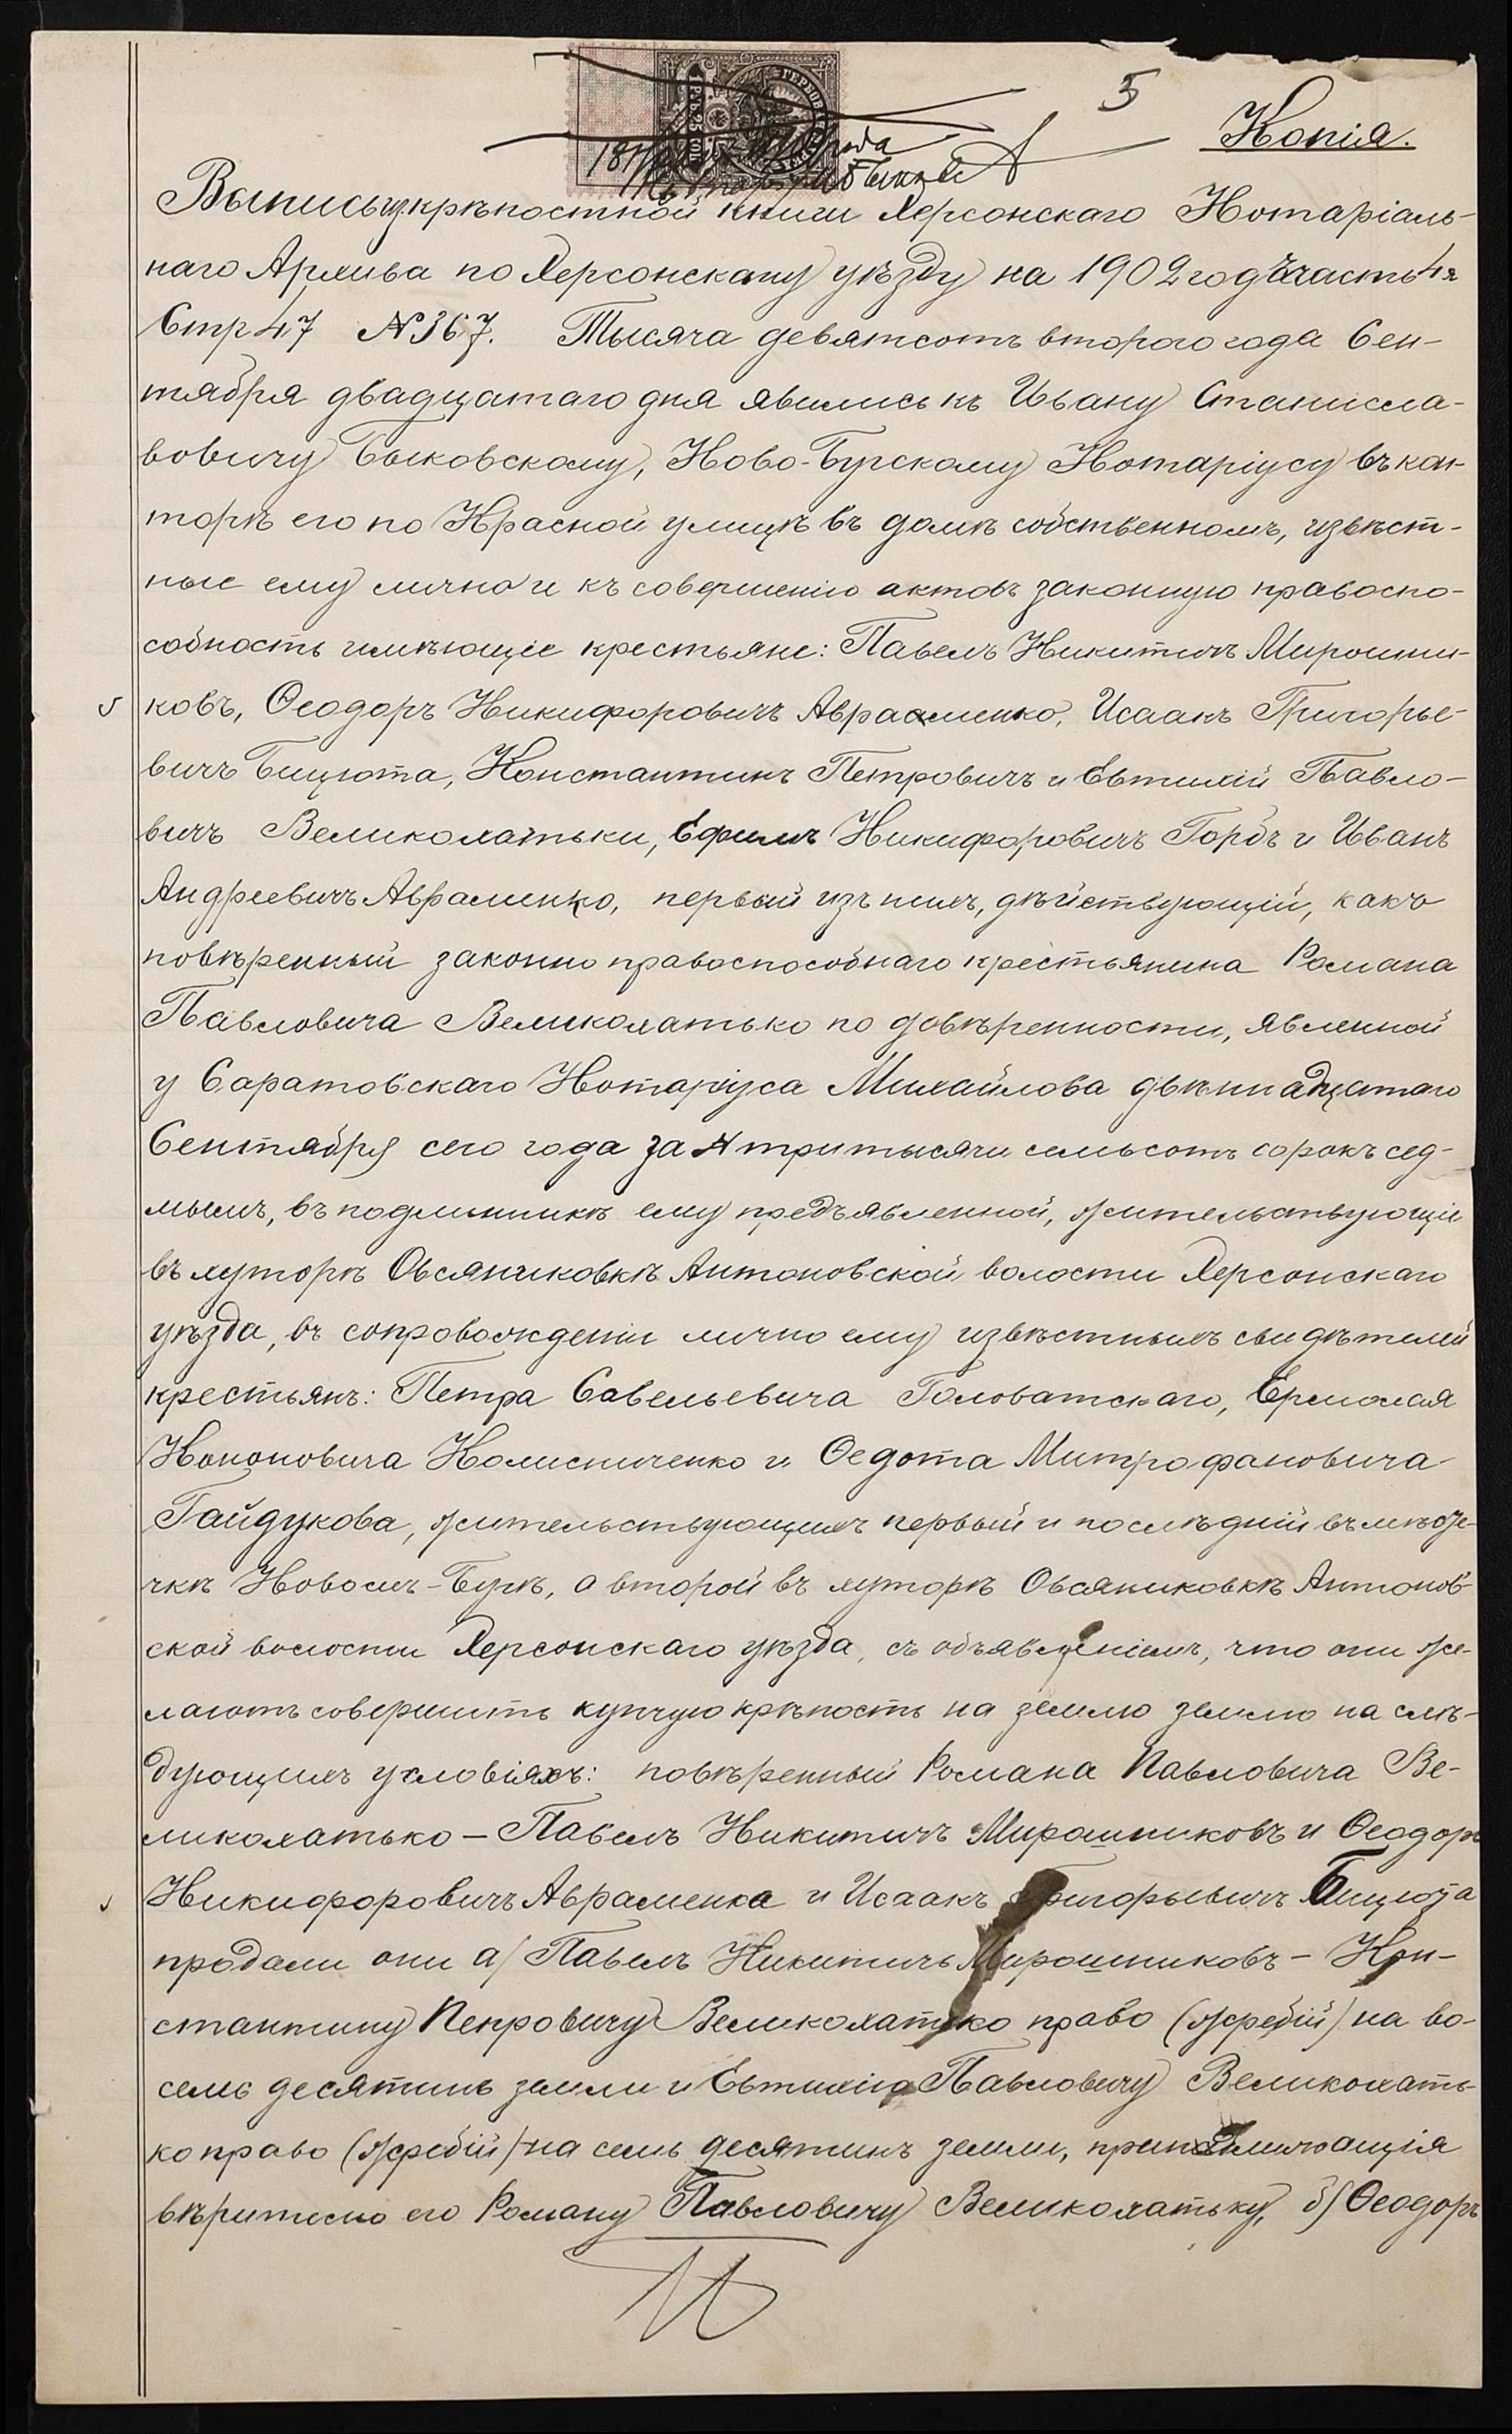 5
Копія.
Выпись изъ крѣпостной книги Херсонскаго Нотаріаль-
наго Архива по Херсонскому уѣзду на 1902 годъ часть 4я
Стр 47 № 367. Тысяча девятсотъ второго года Сен-
тября двадцатаго дня явились къ Ивану Станисла-
вовичу Быковскому, Ново-Бугскому Нотаріусу въ кон-
торѣ его по Красной улицѣ въ домѣ собственномъ, извѣст-
ные ему лично и къ совершенію актовъ законную правоспо-
собность имѣющіе крестьяне: Павелъ Никитичъ Мирошни-
ковъ, Ѳеодоръ Никифоровичъ Авраменко, Исаакъ Григорье-
вичъ Бицюта, Константинъ Петровичъ и Евтихій Павло-
вичъ Великохатьки, Ефимъ Никифоровичъ Горбъ и Иванъ
Андреевичъ Авраменко, первый изъ нихъ, дѣйствующій, какъ
повѣренный законно правоспособнаго крестьянина Романа
Павловича Великохатько по довѣренности, явленной
у Саратовскаго Нотаріуса Михайлова двѣнадцатаго
Сентября сего года за № три тысячи семьсотъ сорокъ седь-
мымъ, въ подлинникѣ ему предъявленной, жительствующіе
въ хуторѣ Овсяниковкѣ Антоновской волости Херсонскаго
уѣзда, въ сопровожденіи лично ему извѣстныхъ свидѣтелей
крестьянъ: Петра Савельевича Головатскаго, Ермолая
Кононовича Колисниченко и Ѳедота Митрофановича
Гайдукова, жительствующихъ первый и послѣдній въ мѣсте-
чкѣ Новомъ-Бугѣ, а второй въ хуторѣ Овсяниковкѣ Антонов-
ской волости Херсонскаго уѣзда, съ объявленіемъ, что они же-
лаютъ совершить купчую крѣпость на землю землю на слѣ-
дующихъ условіяхъ: повѣренный Романа Павловича Ве-
ликохатько – Павелъ Никитичъ Мирошниковъ и Ѳеодоръ
Никифоровичъ Авраменка и Исаакъ Григорьевичъ Бицюта
продали они а/ Павелъ Никитичъ Мирошниковъ – Кон-
стантину Петровичу Великохатько право (жребій) на во-
семь десятинъ земли и Евтихію Павловичу Великохать-
ко право (жребій) на семь десятинъ земли,
вѣрителю его Роману Павловичу Великохатьку, б/ Ѳеодоръ